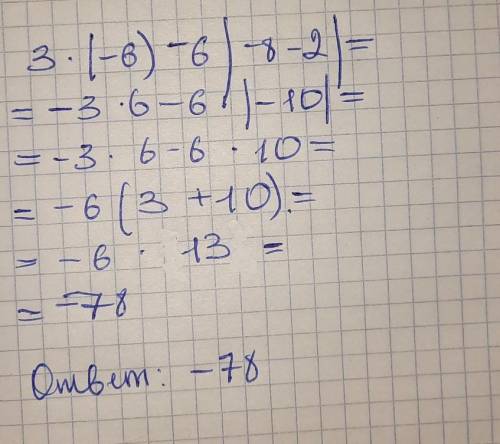 3 · (-6) - 6 |-8-2| =
= -3 · 6 - 6 |-10| =
= -3 · 6 - 6 · 10 =
= -6 (3 + 10) =
= -6 · 13 =
= -78
Ответ: -78